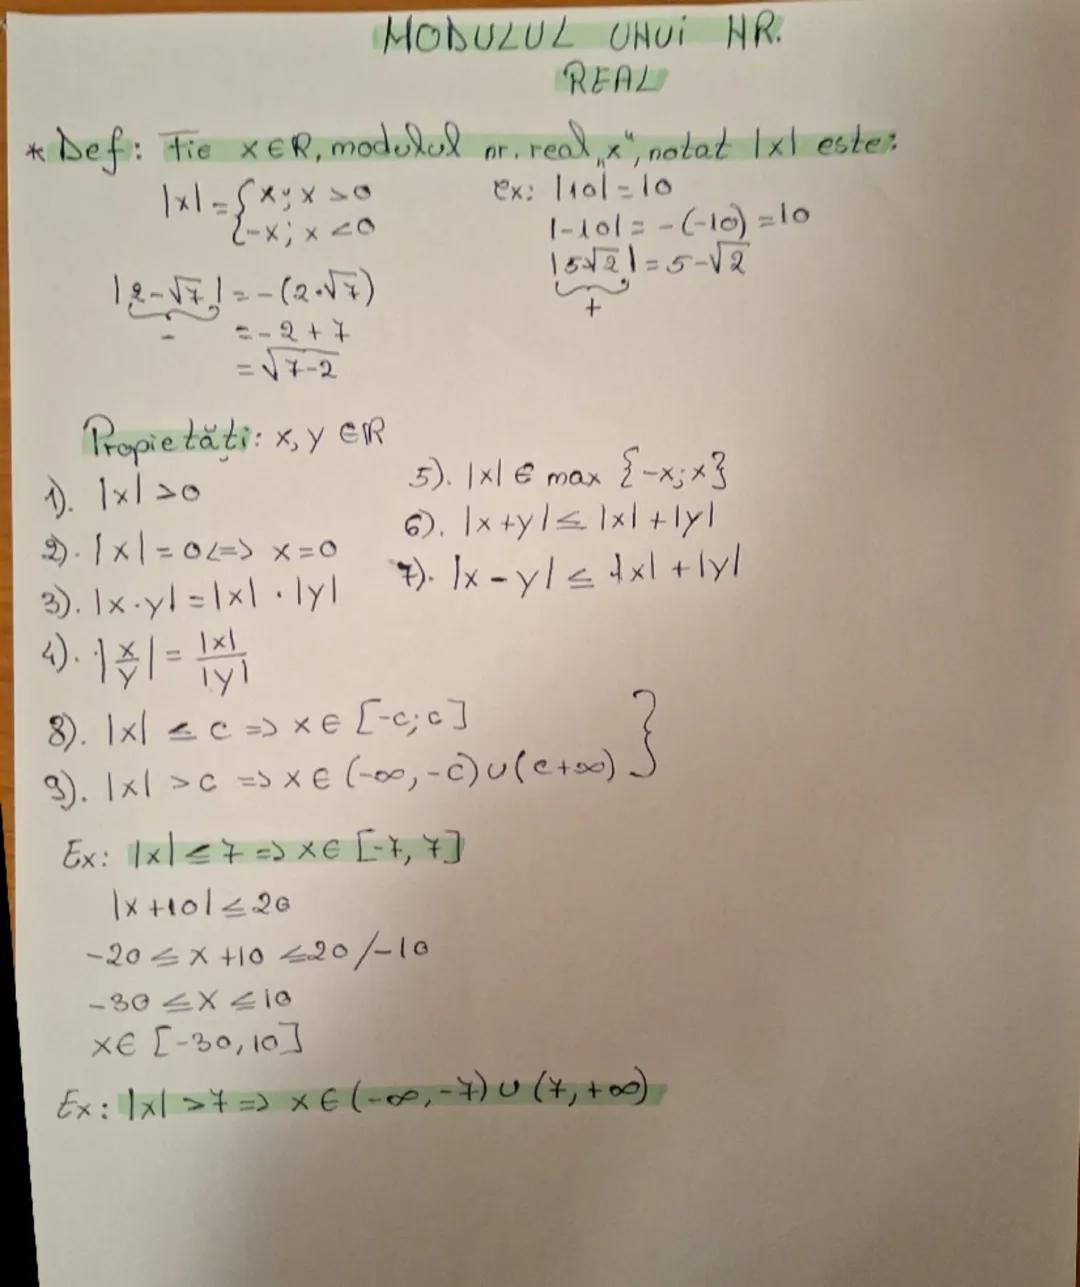 MODULUL UNUI NR.
REAL
* Def: Fie x∈R, modulul nr. real „x", notat |x| este:
|x| = { x; x > 0
{ -x; x < 0
ex: |10| = 10
|-10| = -(-10) = 10
|5√2| = 5-√2
+
|2-√7| = -(2·√7)
-
= -2 + 7
= √7-2
Propietăți: x, y ∈ R
1). |x| > 0
2). |x| = 0 <=> x = 0
3). |x·y| = |x| · |y|
4). |x/y| = |x|/|y|
5). |x| ∈ max {-x; x}
6). |x+y| ≤ |x| + |y|
7). |x-y| ≤ |x| + |y|
8). |x| ≤ c => x ∈ [-c; c]
9). |x| > c => x ∈ (-∞, -c) ∪ (c+∞) }
Ex: |x| ≤ 7 => x ∈ [-7, 7]
|x+10| ≤ 20
-20 ≤ x +10 ≤ 20 /-10
-30 ≤ x ≤ 10
x ∈ [-30, 10]
Ex: |x| > 7 => x ∈ (-∞, -7) ∪ (7, +∞)